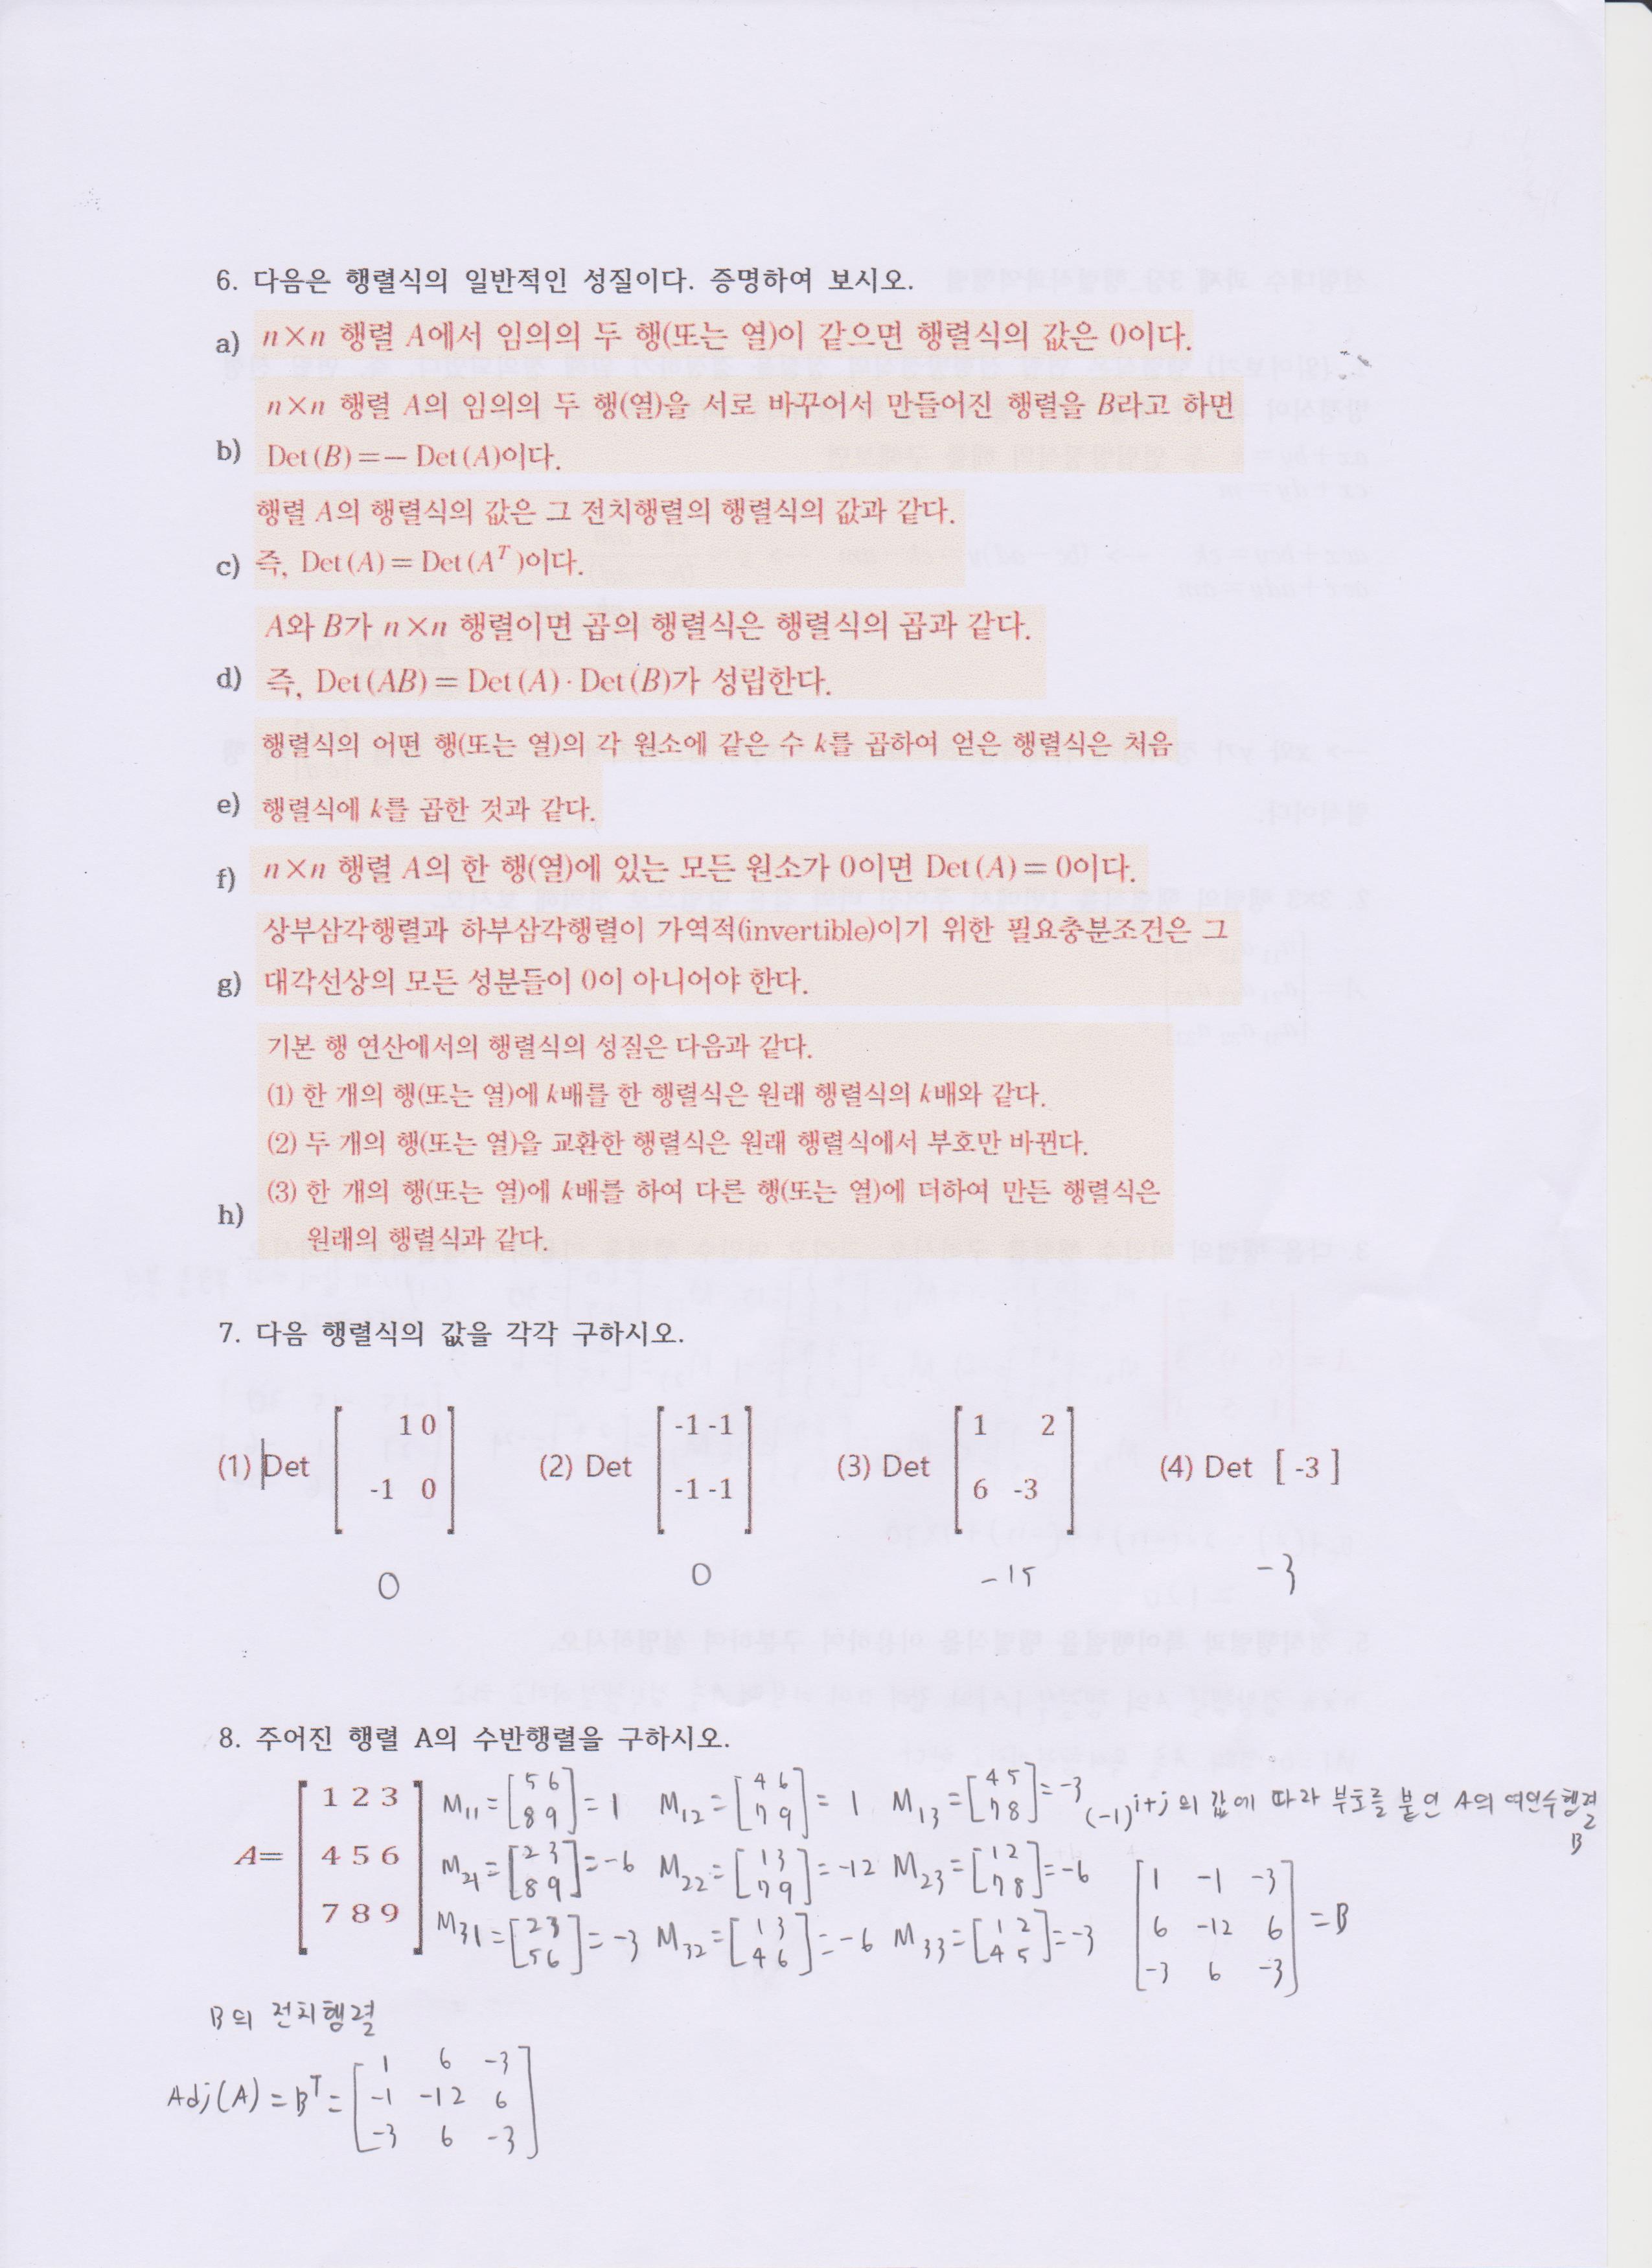 6. 다음은 행렬식의 일반적인 성질이다. 증명하여 보시오.
a) n×n 행렬 A에서 임의의 두 행(또는 열)이 같으면 행렬식의 값은 0이다.
n×n 행렬 A의 임의의 두 행(열)을 서로 바꾸어서 만들어진 행렬을 B라고 하면
b) Det(B)=− Det(A)이다.
행렬 A의 행렬식의 값은 그 전치행렬의 행렬식의 값과 같다.
c) 즉, Det(A)=Det(A^T)이다.
A와 B가 n×n 행렬이면 곱의 행렬식은 행렬식의 곱과 같다.
d) 즉, Det(AB)=Det(A)·Det(B)가 성립한다.
행렬식의 어떤 행(또는 열)의 각 원소에 같은 수 k를 곱하여 얻은 행렬식은 처음
e) 행렬식에 k를 곱한 것과 같다.
f) n×n 행렬 A의 한 행(열)에 있는 모든 원소가 0이면 Det(A)=0이다.
상부삼각행렬과 하부삼각행렬이 가역적(invertible)이기 위한 필요충분조건은 그
g) 대각선상의 모든 성분들이 0이 아니어야 한다.
기본 행 연산에서의 행렬식의 성질은 다음과 같다.
(1) 한 개의 행(또는 열)에 k배를 한 행렬식은 원래 행렬식의 k배와 같다.
(2) 두 개의 행(또는 열)을 교환한 행렬식은 원래 행렬식에서 부호만 바뀐다.
(3) 한 개의 행(또는 열)에 k배를 하여 다른 행(또는 열)에 더하여 만든 행렬식은
h) 원래의 행렬식과 같다.
7. 다음 행렬식의 값을 각각 구하시오.
1 0 -1 -1 1 2
(1) Det (2) Det (3) Det (4) Det [ -3 ]
-1 0 -1 -1 6 -3
0 0 -15 -3
8. 주어진 행렬 A의 수반행렬을 구하시오.
A= [1 2 3
4 5 6
7 8 9]
M11=[5 6 8 9]=1 M12=[4 6 7 9]=1 M13=[4 5 7 8]=-3
(-1)^i+j의 값에 따라 부호를 붙인 A의 여인수행렬
B
M21=[2 3 8 9]=-6 M22=[1 3 7 9]=-12 M23=[1 2 7 8]=-6
M31=[2 3 5 6]=-3 M32=[1 3 4 6]=-6 M33=[1 2 4 5]=-3
1 -1 -3
6 -12 6 =B
-3 6 -3
B의 전치행렬
1 6 -3
Adj(A)=B^T= -1 -12 6
-3 6 -3